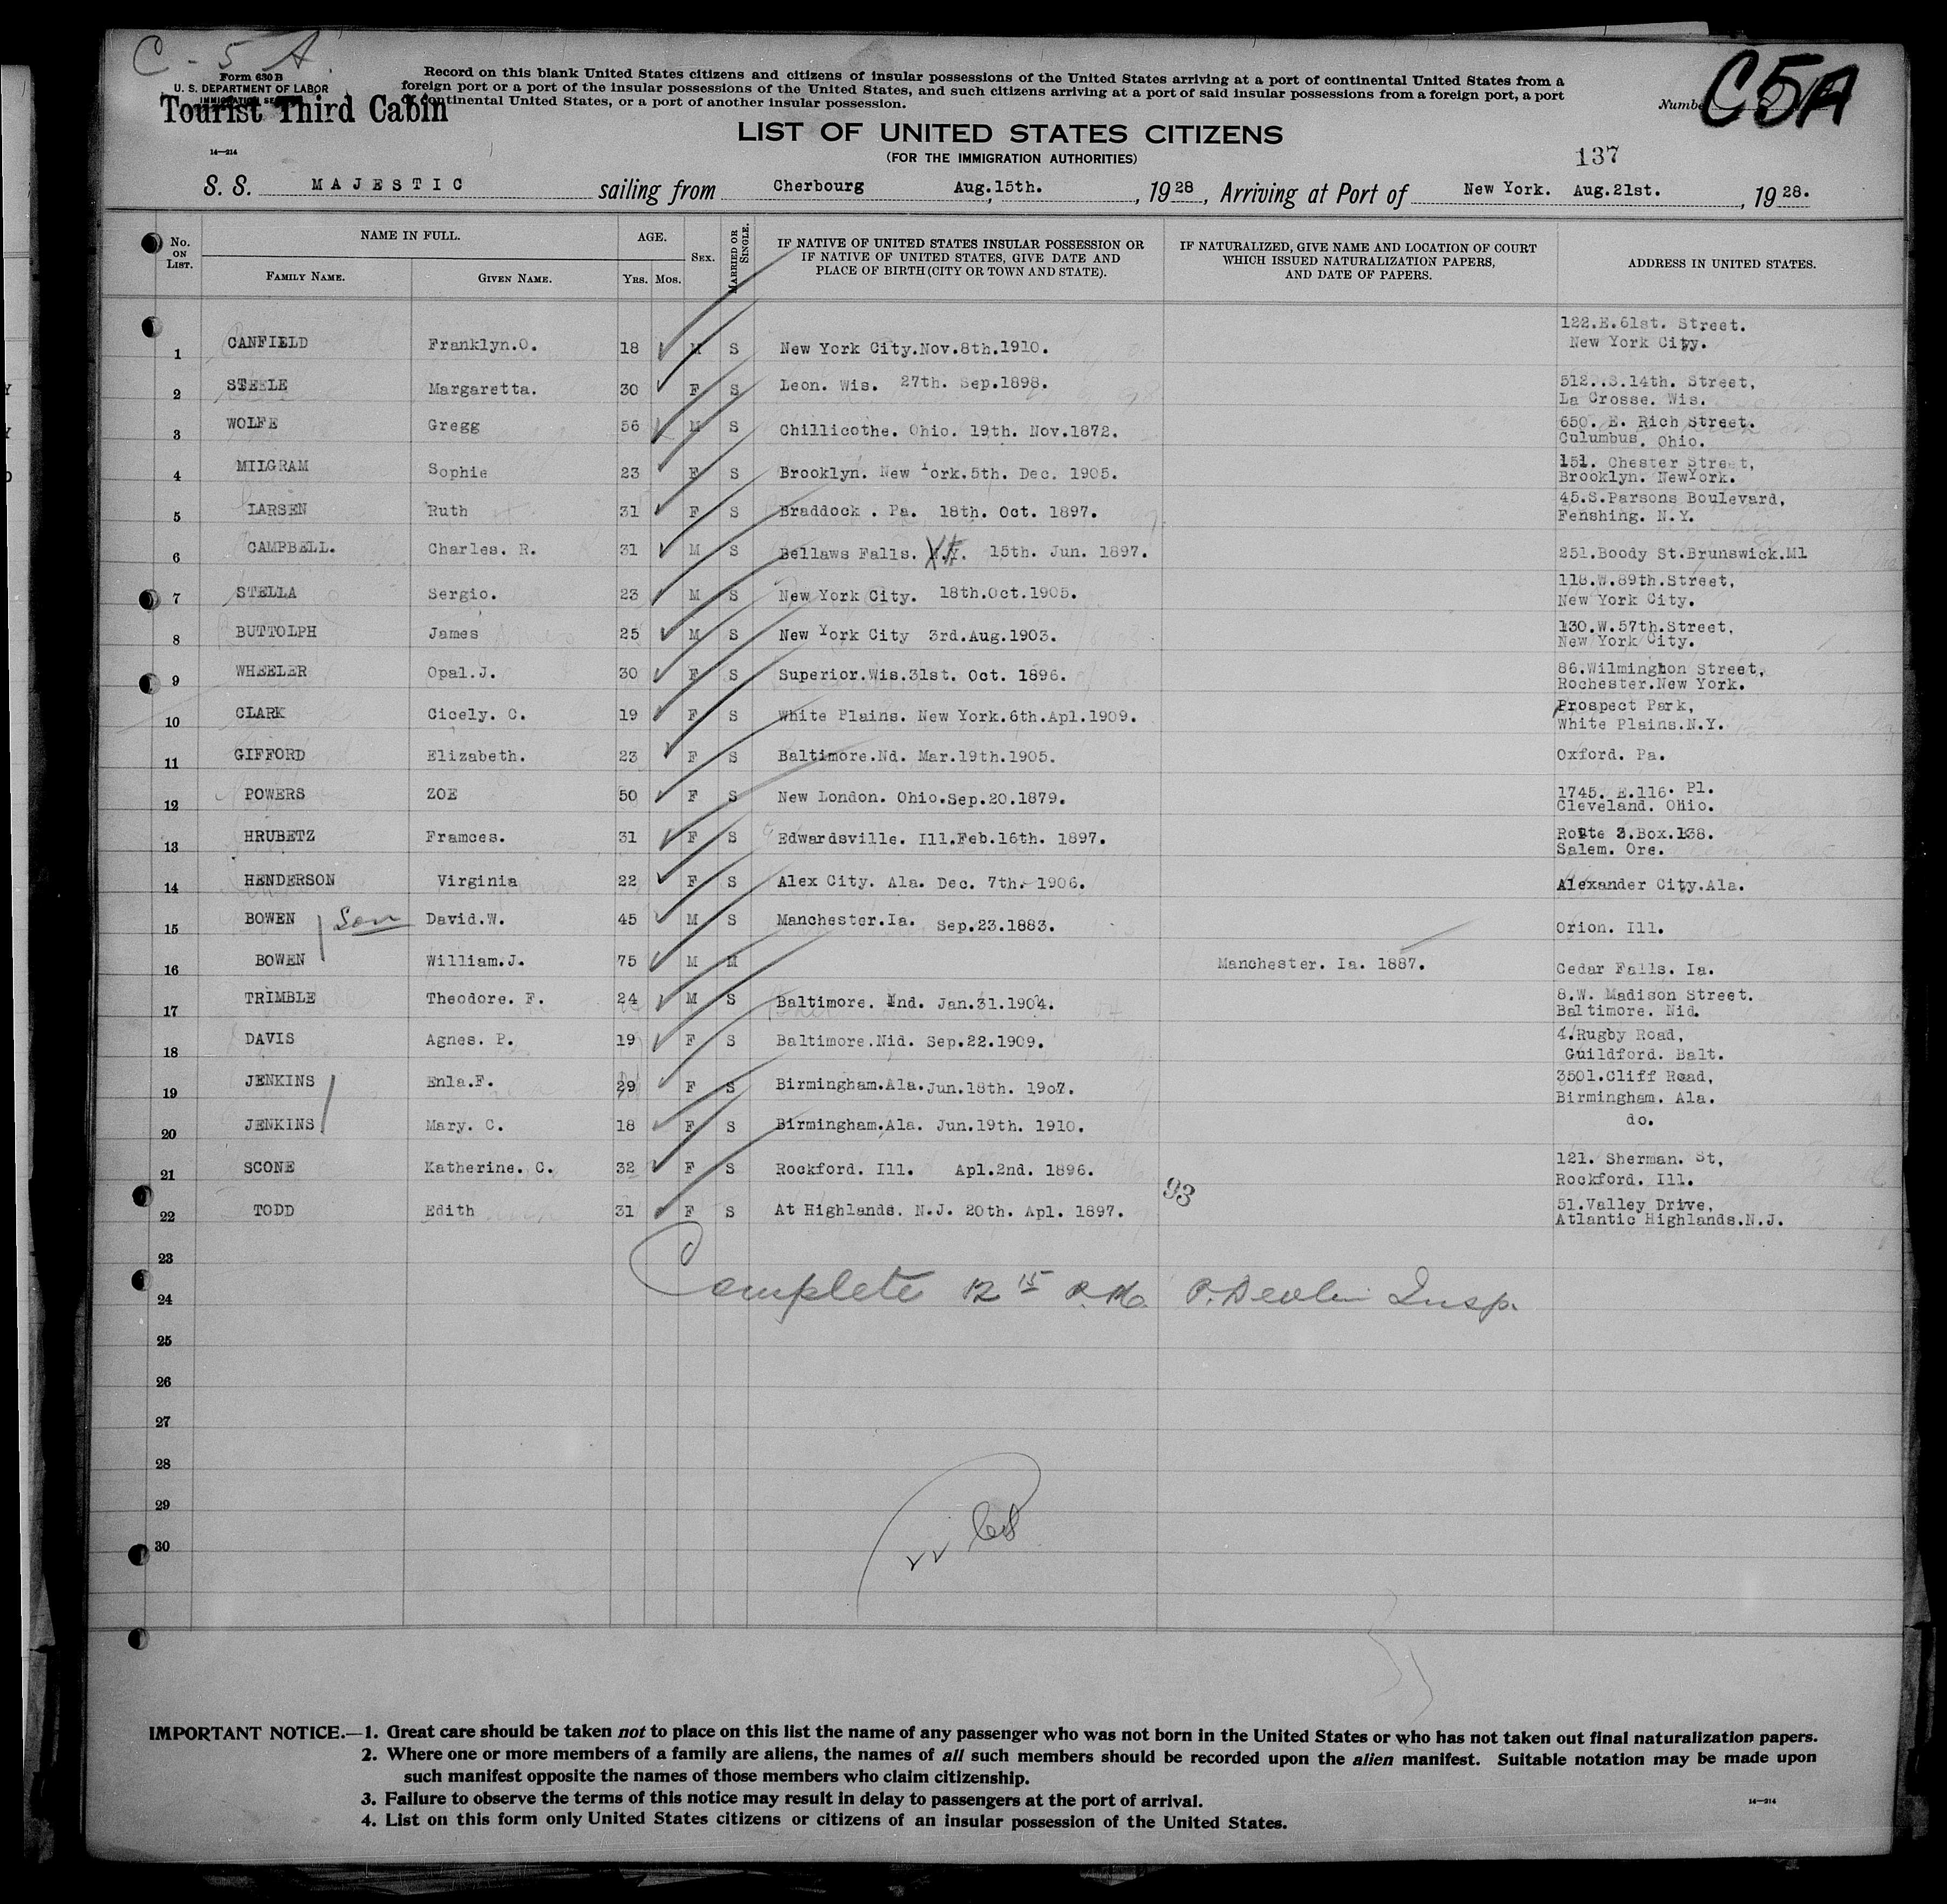 C - 5 A.
Form 630 B
U. S. DEPARTMENT OF LABOR
Tourist Third Cabin
14—214
Record on this blank United States citizens and citizens of insular possessions of the United States arriving at a port of continental United States from a
foreign port or a port of the insular possessions of the United States, and such citizens arriving at a port of said insular possessions from a foreign port, a port
of continental United States, or a port of another insular possession.
Number C5A
LIST OF UNITED STATES CITIZENS
(FOR THE IMMIGRATION AUTHORITIES)
137
S. S. MAJESTIC sailing from Cherbourg Aug.15th., 1928, Arriving at Port of New York. Aug.21st., 1928.
No. ON LIST. NAME IN FULL. FAMILY NAME. GIVEN NAME. AGE. YRS. MOS. SEX. MARRIED OR SINGLE. IF NATIVE OF UNITED STATES INSULAR POSSESSION OR IF NATIVE OF UNITED STATES, GIVE DATE AND PLACE OF BIRTH (CITY OR TOWN AND STATE). IF NATURALIZED, GIVE NAME AND LOCATION OF COURT WHICH ISSUED NATURALIZATION PAPERS, AND DATE OF PAPERS. ADDRESS IN UNITED STATES.
1 CANFIELD Franklyn.O. 18 M S New York City.Nov.8th.1910. 122.E.61st. Street. New York City.
2 STEELE Margaretta. 30 F S Leon. Wis. 27th. Sep.1898. 512..S.14th. Street, La Crosse. Wis.
3 WOLFE Gregg 56 M S Chillicothe. Ohio. 19th. Nov.1872. 650. E. Rich Street. Culumbus. Ohio.
4 MILGRAM Sophie 23 F S Brooklyn. New York.5th. Dec. 1905. 151. Chester Street, Brooklyn. NewYork.
5 LARSEN Ruth 31 F S Braddock . Pa. 18th. Oct. 1897. 45.S.Parsons Boulevard, Fenshing. N.Y.
6 CAMPBELL. Charles. R. 31 M S Bellaws Falls. 15th. Jun. 1897. 251.Boody St.Brunswick.Ml
7 STELLA Sergio. 23 M S New York City. 18th.Oct.1905. 118.W.89th.Street, New York City.
8 BUTTOLPH James 25 M S New York City 3rd.Aug.1903. 130.W.57th.Street, New York City.
9 WHEELER Opal.J. 30 F S Superior.Wis.31st. Oct. 1896. 86.Wilmington Street, Rochester.New York.
10 CLARK Cicely. C. 19 F S White Plains. New York.6th.Apl.1909. Prospect Park, White Plains.N.Y.
11 GIFFORD Elizabeth. 23 F S Baltimore.Nd. Mar.19th.1905. Oxford. Pa.
12 POWERS ZOE 50 F S New London. Ohio.Sep.20.1879. 1745. E.116. Pl. Cleveland. Ohio.
13 HRUBETZ Framces. 31 F S Edwardsville. Ill.Feb.16th. 1897. Route 3.Box.138. Salem. Ore.
14 HENDERSON Virginia 22 F S Alex City. Ala. Dec. 7th. 1906. Alexander City.Ala.
15 BOWEN Son David.W. 45 M S Manchester.Ia. Sep.23.1883. Orion. Ill.
16 BOWEN William.J. 75 M M Manchester. Ia. 1887. Cedar Falls. Ia.
17 TRIMBLE Theodore. F. 24 M S Baltimore. Mnd. Jan.31.1904. 8.W. Madison Street. Baltimore. Nid.
18 DAVIS Agnes. P. 19 F S Baltimore.Nid. Sep.22.1909. 4.Rugby Road, Guildford. Balt.
19 JENKINS Enla.F. 29 F S Birmingham.Ala.Jun.18th. 1907. 3501.Cliff Road, Birmingham. Ala.
20 JENKINS Mary. C. 18 F S Birmingham.Ala. Jun.19th. 1910. do.
21 SCONE Katherine. C. 32 F S Rockford. Ill. Apl.2nd. 1896. 121. Sherman. St, Rockford. Ill.
93
22 TODD Edith 31 F S At Highlands. N.J. 20th. Apl. 1897. 51.Valley Drive, Atlantic Highlands.N.J.
23
Complete 12 15 P.M. P. Devlin Insp.
24
25
26
27
28
29
30
IMPORTANT NOTICE.—1. Great care should be taken not to place on this list the name of any passenger who was not born in the United States or who has not taken out final naturalization papers.
2. Where one or more members of a family are aliens, the names of all such members should be recorded upon the alien manifest. Suitable notation may be made upon
such manifest opposite the names of those members who claim citizenship.
3. Failure to observe the terms of this notice may result in delay to passengers at the port of arrival.
4. List on this form only United States citizens or citizens of an insular possession of the United States.
14—214